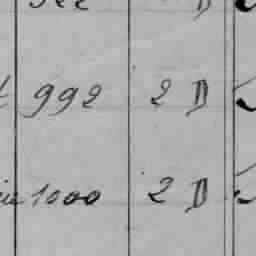 992 2 D
1000 2 D